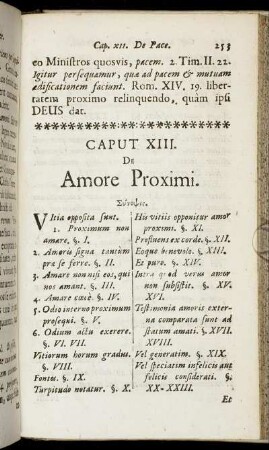 Cap. XII. De Pace. 253
eo Ministros quosvis, pacem. 2. Tim. II. 22.
Igitur persequamur, quæ ad pacem & mutuam
ædificationem faciunt. Rom. XIV. 19. liber-
tatem proximo relinquendo, quàm ipsi
DEUS dat.
CAPUT XIII.
DE
Amore Proximi.
Σύνοψις.
VItia opposita sunt.
1. Proximum non
amare, §. I.
2. Amoris signa tantùm
præ se ferre. §. II.
3. Amare non nisi eos, qui
nos amant. §. III.
4. Amare cæcè. §. IV.
5. Odio interno proximum
prosequi. §. V.
6. Odium actu exerere.
§. VI. VII.
Vitiorum horum gradus.
§. VIII.
Fontes. §. IX.
Turpitudo notatur. §. X.
His vitiis opponitur amor
proximi. §. XI.
Profluens ex corde. §. XII.
Eoque benevolo. §. XIII.
Et puro. §. XIV.
Intra quod verus amor
non subsistit. §. XV.
XVI.
Testimonia amoris exter-
na comparata sunt ad
statum amati. §. XVII.
XVIII.
Vel generatim. §. XIX.
Vel speciatim infelicis aut
felicis considerati. §.
XX-XXIII.
Et